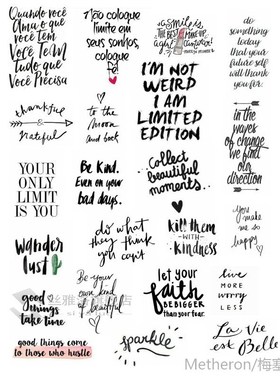 Quando você
Ama o que
você tem
Você Tem
Tudo que
Você Precisa
Não coloque
limite em
seus sonhos,
coloque
fé.
a smile is
THE BEST MAKE-UP
a girl
can wear
do
something
today
that your
future self
will thank
you for.
I'M NOT
WEIRD
I AM
LIMITED
EDITION
thankful
grateful
to the
moon
and back
in the
waves
of change
we find
our
direction
YOUR
ONLY
LIMIT
IS YOU
Be Kind.
Even on your
bad days.
collect
beautiful
moments
you
make
me so
happy
wander
lust
do what
they think
you can't
kill them
WITH
kindness
good
things
take time
Be your
own kind
of beautiful
let your
faith
BE BIGGER
than your fear.
LIVE
MORE
WORRY
LESS
good things come
to those who hustle
sparkle
La Vie
est Belle
Metheron/梅塞